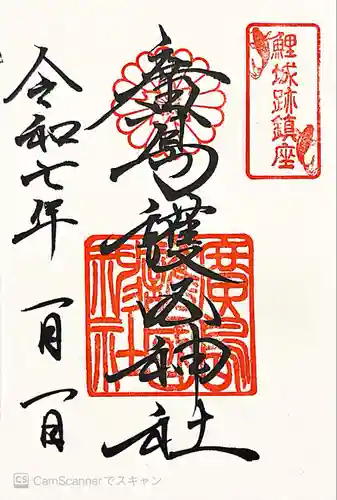 鯉城跡鎮座
廣島護国神社
令和七年 一月一日
CS CamScannerでスキャン